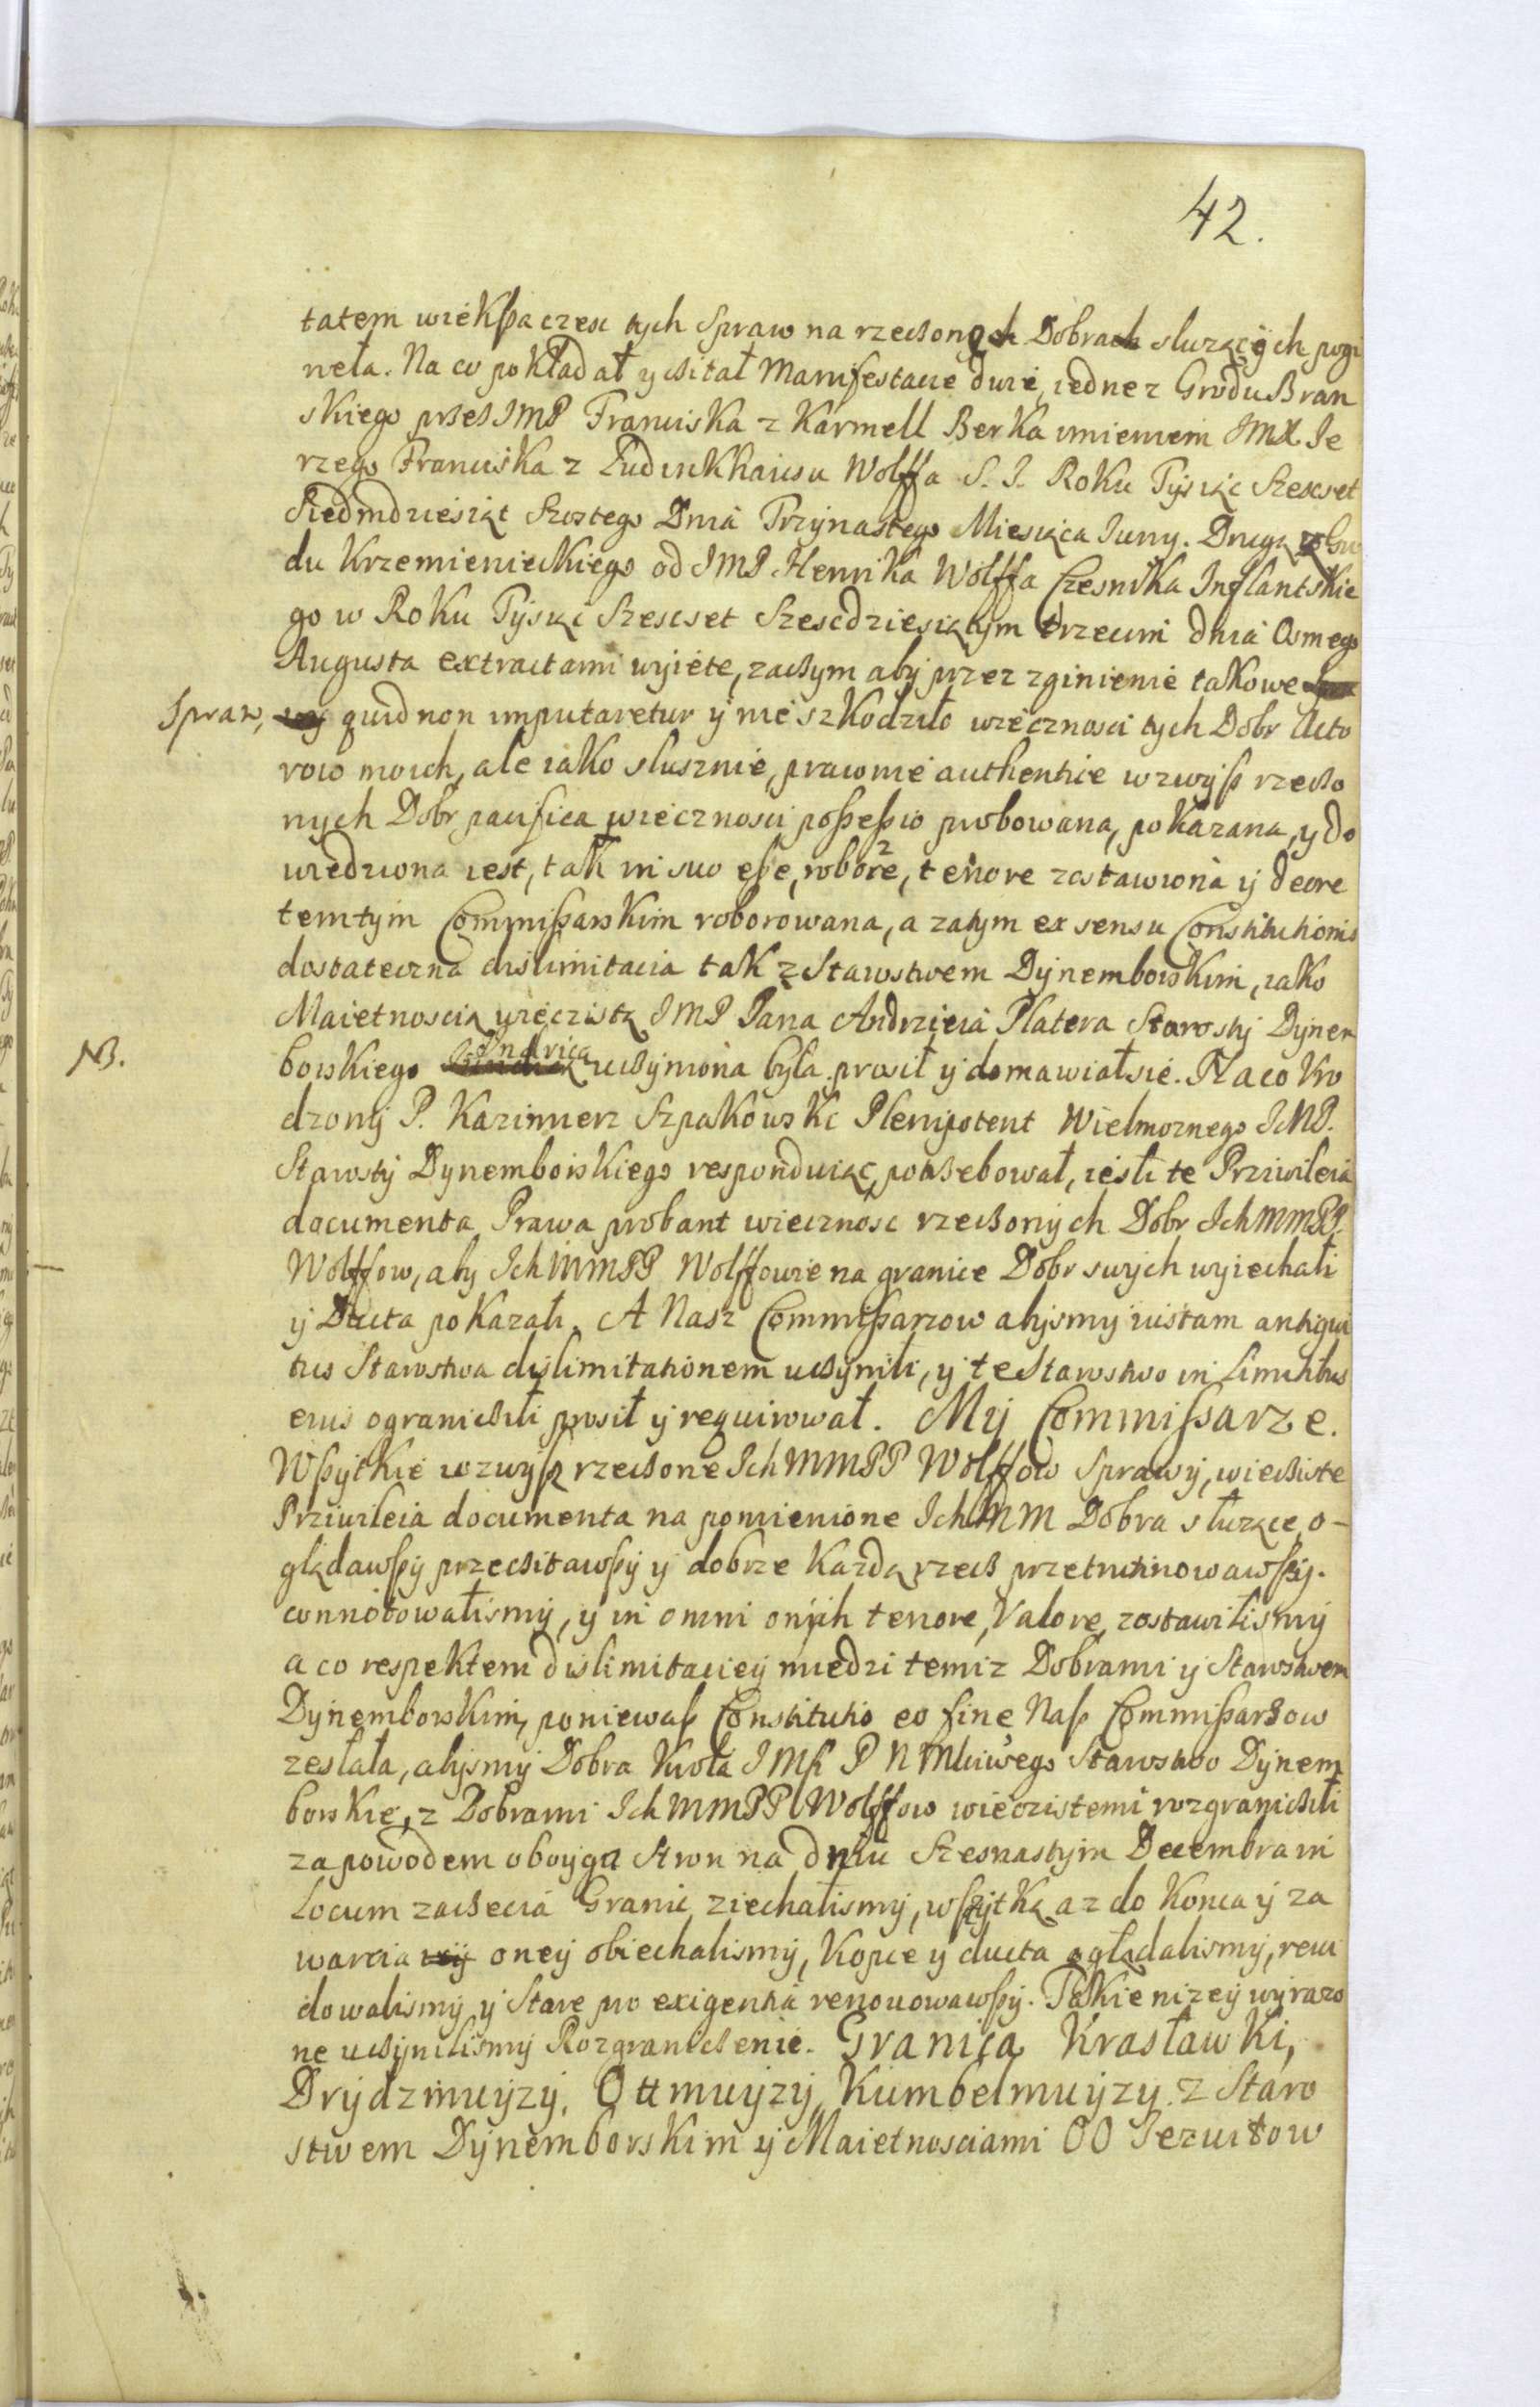 42.
tatem wiekßa czesc tych Spraw na rzeczonych Dobrach sluzących pogi
neła. Na co pokładał y czitał Manifestacie dwie, iedne z Grodu Bran
skiego przez IMP Franciska z Karmell Berka imieniem IMX Je
rzego Franciska z Ludinkhausu Wolffa S. I. Roku Tysiąc Szescset
Siedmdziesiąt Szostego Dnia Trzynastego Miesiąca Iuny. Drugą z Gro
du Krzemienieckiego od IMP Henrika Wolffa Czesnika Inflantskie
go w Roku Tysiąc Szescset Szescdziesiątym trzecim dnia Osmego
Augusta extractami wyięte, zaczym aby przez zginienie takowe
Spraw, quid non imputaretur y nie szkodziło wiecznosci tych Dobr Acto
row moich, ale iako slusznie, prawnie authentice wzwyß rzeczo
nych Dobr pacifica wiecznosci poßeßio probowana, pokazana, y do
wiedziona iest, tak in suo eße, robore, tenore zostawiona y decre
tem tym Commißarskim roborowana, a zatym ex sensu Constitutionis
dostateczna dislimitacia tak z Starostwem Dynemborskim, iako
Maietnoscią wieczistą IMP Pana Andrzeia Platera Starosty Dynem
NB. borskiego Indrica uczyniona była prosił y domawiał sie. Na co Uro
dzony P. Kazimierz Szpakowski Plenipotent Wielmoznego IMP.
Starosty Dynemborskiego respondując, potrzebował, iesli te Priwileia
documenta Prawa probant wiecznosc rzeczonych Dobr IchMMPP.
Wolffow, aby IchMMPP Wolffowie na granice Dobr swych wyiechali
y Ducta pokazali. A Nasz Commißarzow abysmy iustam antiqui
tus Starostwa dislimitationem uczynili, y te Starostwo in Limitibus
eius ograniczili prosił y requirował. My Commißarze.
Wßytkie wzwyß rzeczone IchMMPP Wolffow Sprawy, wiecziste
Priwileia documenta na pomienione IchMM Dobra słuzące, o-
glądawßy przeczitawßy y dobrze kazdą rzecz przetrutinowawßy.
connotowalismy, y in omni onych tenore, Valore, zostawilismy
a co respektem dislimitaciey miedzi temiz Dobrami y Starostwem
Dynemborskim, poniewaß Constitutio eo fine Naß Commißarzow
zesłała, abysmy Dobra Krola IMſci P N Młciwego Starostwo Dynem
borskie, z Dobrami IchMMPP Wolffow wieczistemi rozgraniczili
za powodem oboyga Stron na dniu Szesnastym Decembra in
Locum zaczecia Granic ziechalismy, wßytką az do konca y za
warcia oney obiechalismy, Kopce y ducta oglądalismy, rewi
dowalismy y Stare pro exigentia renouowawßy. Takie nizey wyrazo
ne uczynilismy Rozgraniczenie. Granica Krasławki,
Drydzmuyzy, Ottmuyzy, Kumbelmuyzy z Staro
stwem Dynemborskim y Maietnosciami OO Iezuitow